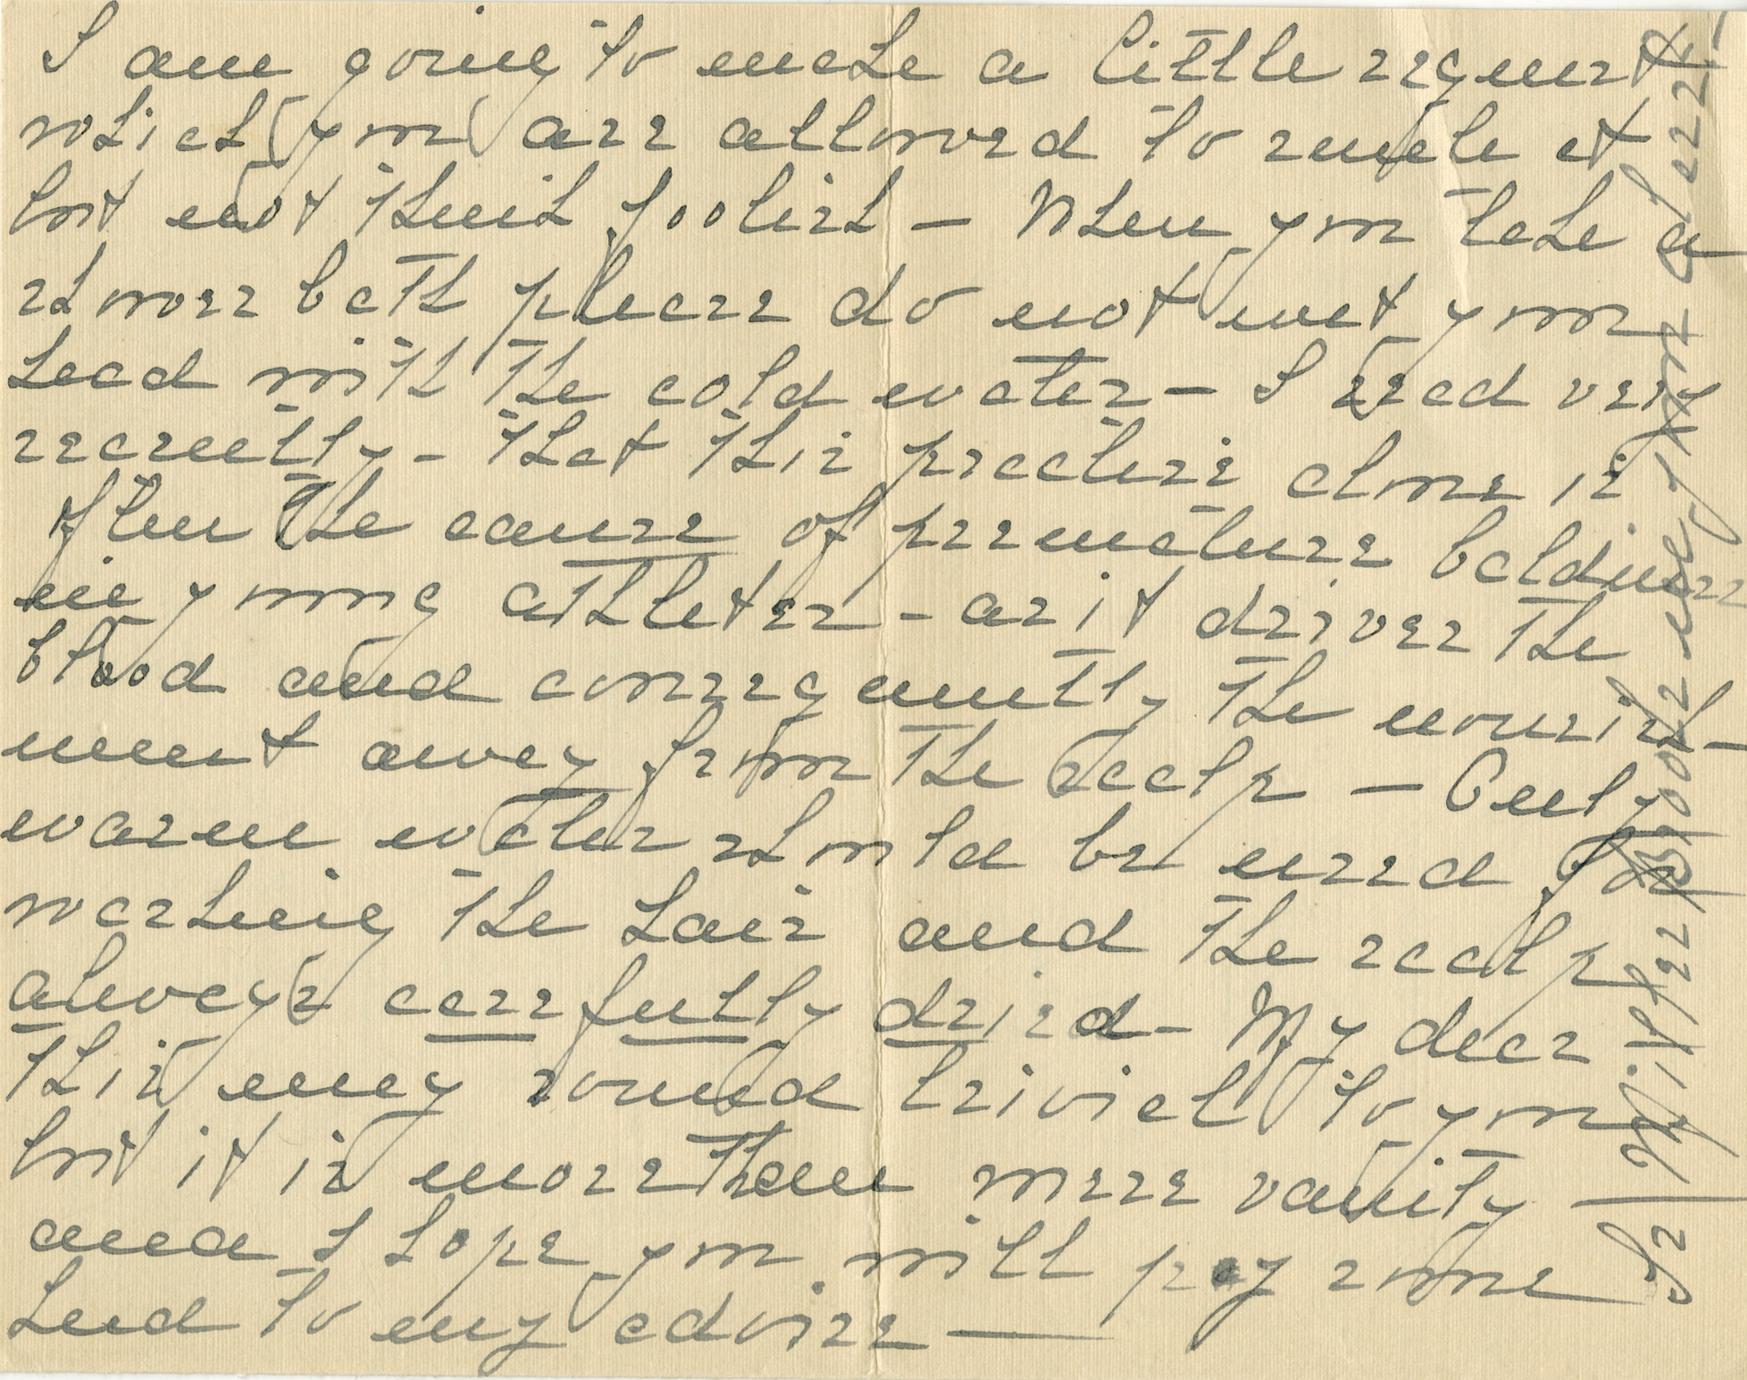 I am going to make a little request
which you are allowed to smile at
but not think foolish – When you take a
shower bath please do not wet your
head with the cold water – I read very
recently – that this practise alone is
often the cause of premature baldness
in young athletes – as it drives the
blood and consequently the nourish-
ment away from the scalp – Only
warm water should be used for
washing the hair and the scalp
always carefully dried – My dear
this may sound trivial to you
but it is more than mere vanity –
and I hope you will pay some
heed to my advise —
Is